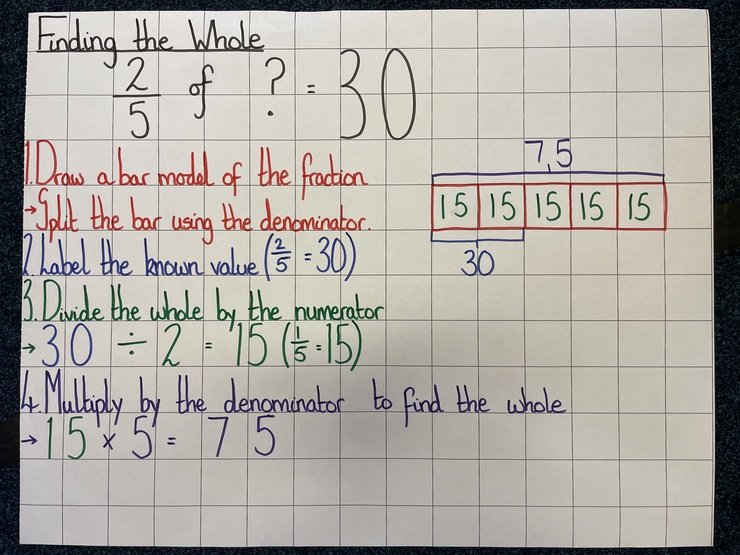 Finding the Whole
2/5 of ? = 30
1. Draw a bar model of the fraction
→ Split the bar using the denominator.
75
15 15 15 15 15
30
2. Label the known value (2/5 = 30)
3. Divide the whole by the numerator
→ 30 ÷ 2 = 15 (1/5 = 15)
4. Multiply by the denominator to find the whole
→ 15 × 5 = 75